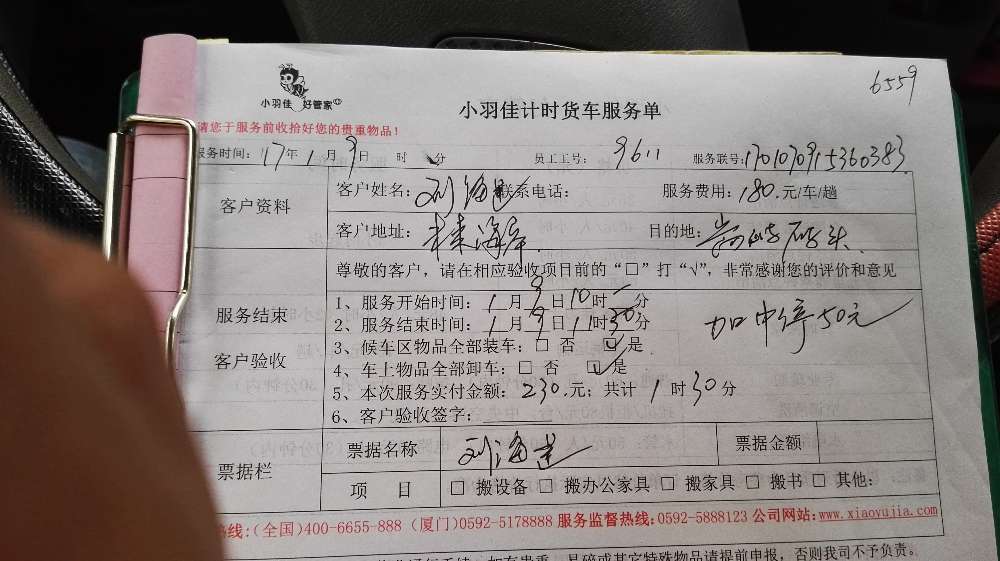 6559
小羽佳 好管家
小羽佳计时货车服务单
请您于服务前收拾好您的贵重物品!
服务时间: 17年1月9日 时 分 员工工号: 9611 服务联号: 1701070915360383
客户资料
客户姓名: 刘海 联系电话: 服务费用: 180.元/车/趟
客户地址: 海岸 目的地:
尊敬的客户，请在相应验收项目前的“□”打“√”，非常感谢您的评价和意见
服务结束
客户验收
1、服务开始时间: 1月9日10时 分
2、服务结束时间: 1月9日11时30分
3、候车区物品全部装车: □ 否 ☑ 是
4、车上物品全部卸车: □ 否 ☑ 是
5、本次服务实付金额: 230.元; 共计 1 时 30 分
6、客户验收签字:
加中停50元
票据栏
票据名称 刘海 票据金额
项 目 □ 搬设备 □ 搬办公家具 □ 搬家具 □ 搬书 □ 其他:
热线:(全国)400-6655-888 (厦门)0592-5178888 服务监督热线:0592-5888123 公司网站:www.xiaoyujia.com
品请提前申报，否则我司不予负责。